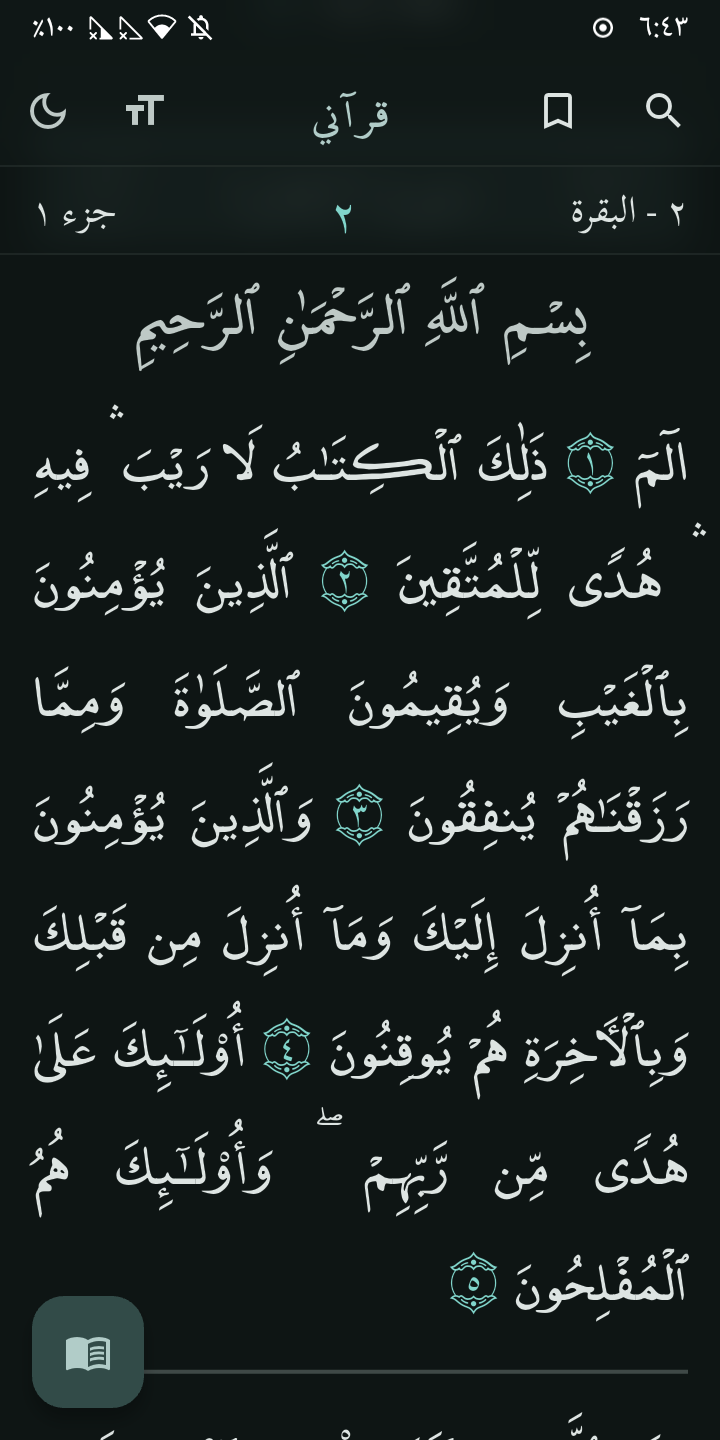 ٦:٤٣ ٪١٠٠
قرآني
٢ - البقرة ٢ جزء ١
بِسْمِ ٱللَّهِ ٱلرَّحْمَٰنِ ٱلرَّحِيمِ
الٓمٓ ١ ذَٰلِكَ ٱلْكِتَٰبُ لَا رَيْبَ ۛ فِيهِ
ۛ هُدًى لِّلْمُتَّقِينَ ٢ ٱلَّذِينَ يُؤْمِنُونَ
بِٱلْغَيْبِ وَيُقِيمُونَ ٱلصَّلَوٰةَ وَمِمَّا
رَزَقْنَٰهُمْ يُنفِقُونَ ٣ وَٱلَّذِينَ يُؤْمِنُونَ
بِمَآ أُنزِلَ إِلَيْكَ وَمَآ أُنزِلَ مِن قَبْلِكَ
وَبِٱلْأَخِرَةِ هُمْ يُوقِنُونَ ٤ أُوْلَٰٓئِكَ عَلَىٰ
هُدًى مِّن رَّبِّهِمْ ۖ وَأُوْلَٰٓئِكَ هُمُ
ٱلْمُفْلِحُونَ ٥